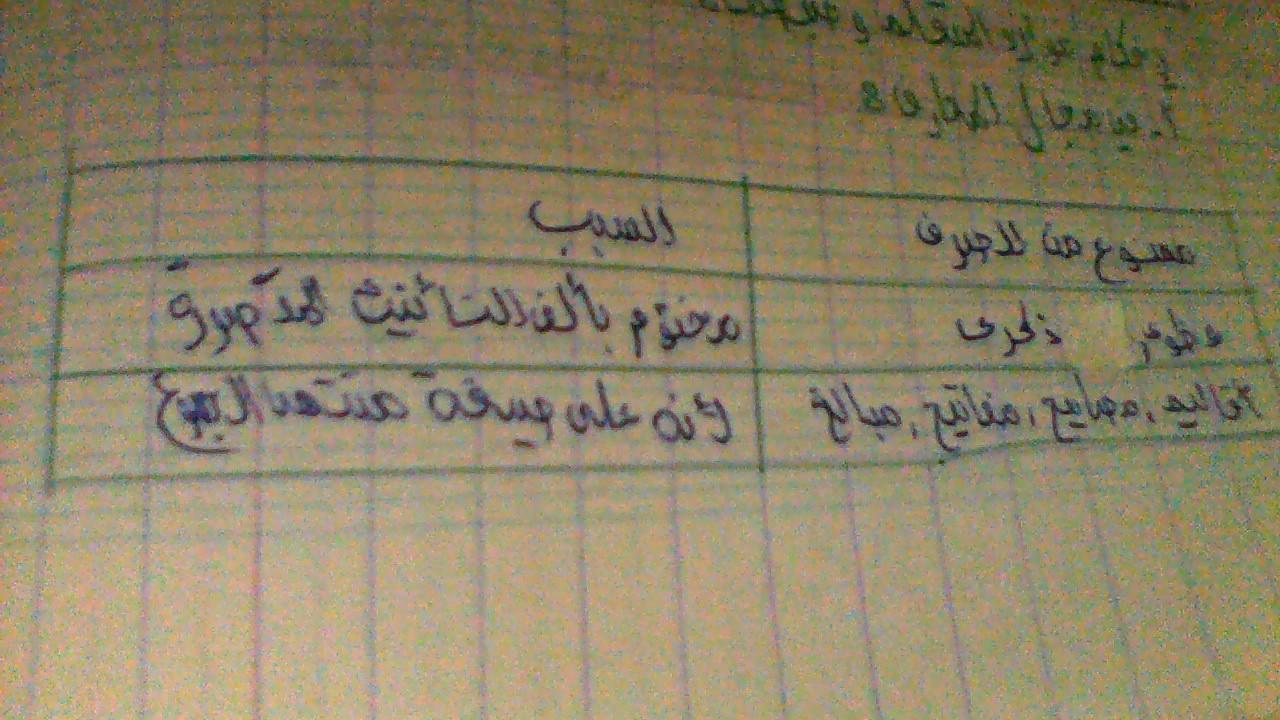 إحكام موارد المتعلم و
أ. في مجال المعارف:
ممنوع من الصرف السبب
ذكرى مختوم بألف التأنيث المقصورة
أقاليم, مصابيح, مفاتيح, مبالغ لأنه على صيغة منتهى الجموع